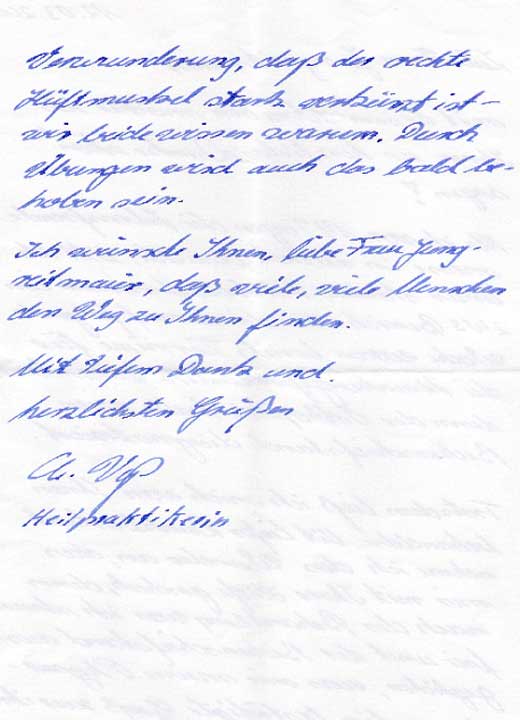 Verwunderung, daß der rechte
Hüftmuskel stark verkürzt ist –
wir beide wissen warum. Durch
Übungen wird auch das bald be-
hoben sein.
Ich wünsche Ihnen, liebe Frau Jung-
reitmaier, daß viele, viele Menschen
den Weg zu Ihnen finden.
Mit tiefem Dank und
herzlichsten Grüßen
Ch. Voß
Heilpraktikerin